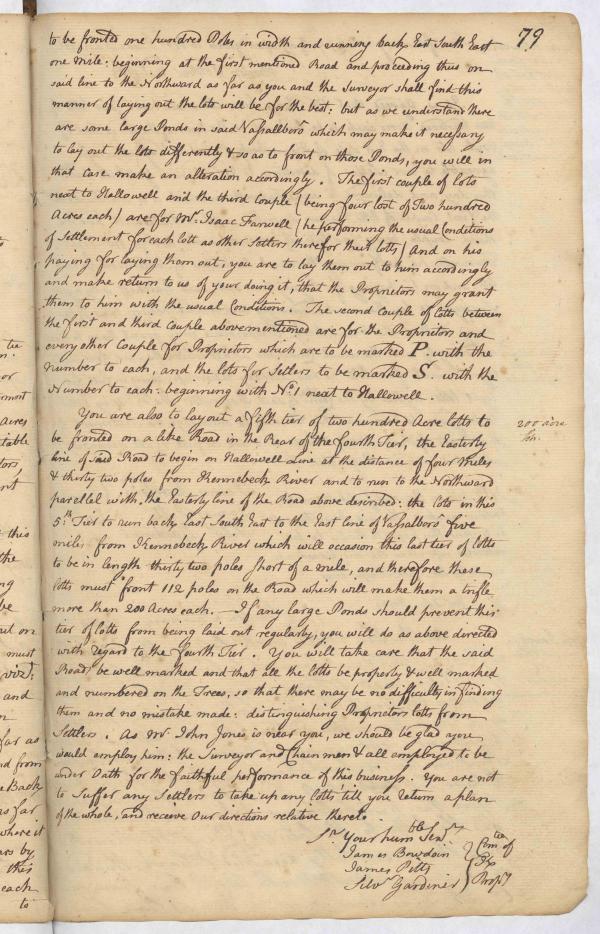 79
to be fronted one hundred Poles in width and running back East South East
one mile: beginning at the first mentioned Road and proceeding thus on
said line to the Northward as far as you and the Surveyor shall find this
manner of laying out the lots will be for the best: but as we understand there
are some large Ponds in said Vassallboro' which may make it necessary
to lay out the lots differently & so as to front on those Ponds, you will in
that case make an alteration accordingly. The first couple of lots
next to Hallowell and the third Couple (being four lost of Two hundred
Acres each) are for Mr. Isaac Farwell (he performing the usual Conditions
of Settlement for each lott as other Setters there for their lotts) And on his
paying for laying them out, you are to lay them out to him accordingly
and make return to us of your doing it, that the Proprietors may grant
them to him with the usual Conditions. The second Couple of lotts between
the first and third Couple abovementioned are for the Proprietors and
every other Couple for Proprietors which are to be marked P. with the
number to each, and the lots for Setlers to be marked S. with the
Number to each: beginning with No. 1 next to Hallowell.
You are also to layout a fifth tier of two hundred Acre lotts to
be fronted on a like Road in the Rear of the fourth Tier, the Easterly
line of said Road to begin on Hallowell Line at the distance of four Miles
& thirty two poles from Kennebeck River and to run to the Northward
parellel with the Easterly line of the Road above desribed: the lots in this
5.th Tier to run back East South East to the East line of Vassalboro' five
miles from Kennebeck River which will occasion this last tier of lotts
to be in length thirty two poles short of a mile, and therefore these
lotts must front 112 poles on the Road which will make them a trifle
more than 200 Acres each. — If any large Ponds should prevent this
tier of lotts from being laid out regularly, you will do as above directed
with regard to the fourth Tier. You will take care that the said
Road be well marked and that all the lotts be properly & well marked
and numbered on the Trees, so that there may be no difficulty in finding
them and no mistake made: distinguishing Proprietors lotts from
Setlers. As Mr John Jones is near you, we should be glad you
would employ him: the Surveyor and Chainmen & all employed to be
under Oath for the faithful performance of this business. You are not
to suffer any Settlers to take up any lotts till you return a plan
of the whole, and receive our directions relative thereto.
200 acre
Sr. Your hum.ble Serv.ts
James Bowdoin
James Pitts
Silv.r Gardiner
Com.tee of
Prop.rs